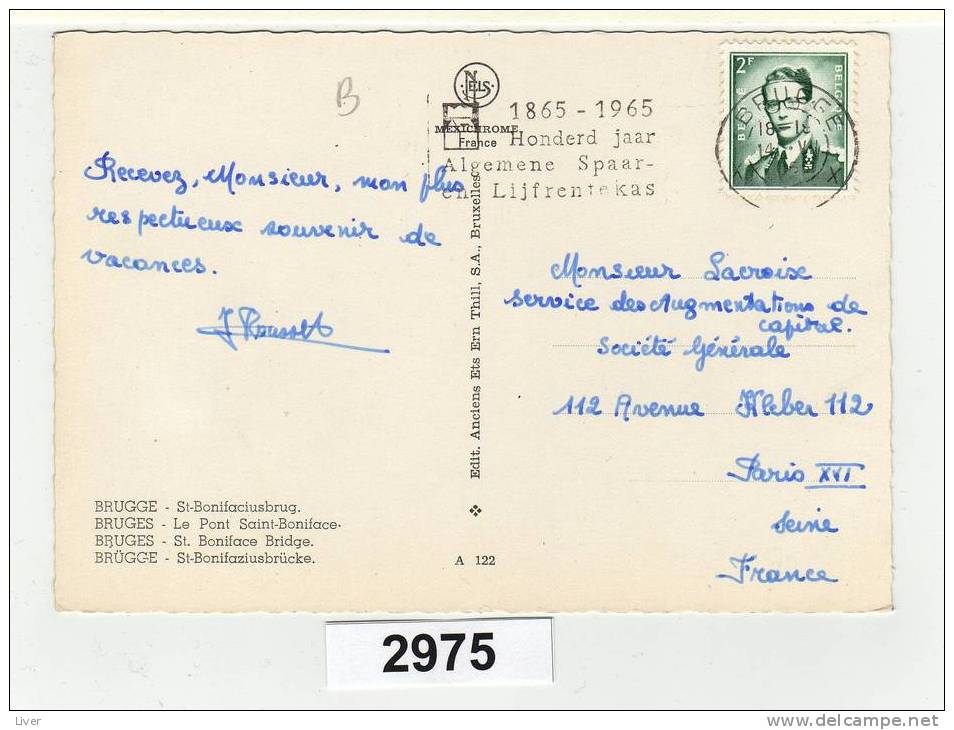 B
NELS
MEXICHROME
France
1865 - 1965
Honderd jaar
Algemene Spaar-
en Lijfrentekas
2F
BELG
BRUGGE
18-19
14
Recevez, Monsieur, mon plus
respectueux souvenir de
vacances.
J Rousset
Edit. Anciens Ets Ern Thill, S.A., Bruxelles
Monsieur Lacroix
service des Augmentations de
capital.
Société Générale
112 Avenue Kleber 112
Paris XVI
Seine
France
BRUGGE - St-Bonifaciusbrug.
BRUGES - Le Pont Saint-Boniface.
BRUGES - St. Boniface Bridge.
BRÜGGE - St-Bonifaziusbrücke.
A 122
2975
Liver
delcampe.net